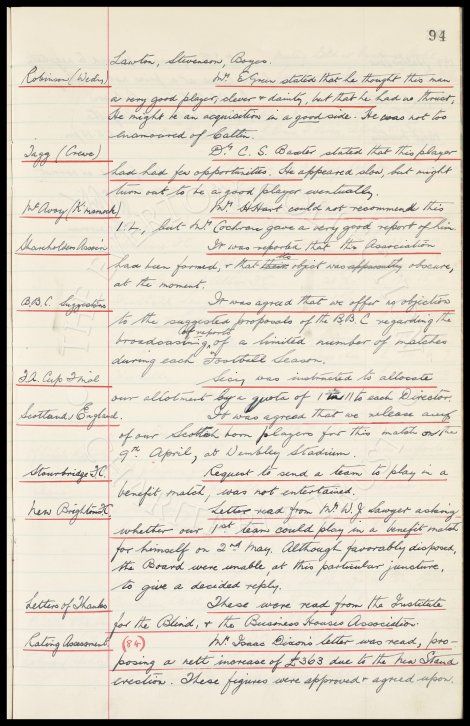 94
Lawton, Stevenson, Boyes.
Robinson (Wedns) Mr. E Green stated that he thought this man
a very good player, clever & dainty, but that he had no thrust,
He might be an acquisition in a good side. He was not too
enamoured of Catlin.
Tagg (Crewe) Dr. C. S. Baxter stated that this player
had had few opportunities. He appeared slow, but might
turn out to be a good player eventually.
McAvoy (K'marnock) Mr. H Hart could not recommend this
I.L, but Mr. Cochrane gave a very good report of him.
Shareholders Assocn It was reported that the Association
had been formed, & that its object was apparently obscure,
at the moment.
B.B.C. Suggestions It was agreed that we offer no objection
to the suggested proposals of the B.B.C regarding the
broadcasting, of reports of a limited number of matches
during each Football Season.
F.A. Cup Final Secy was instructed to allocate
our allotment by a quota of 1 to 11 to each Director.
Scotland v England. It was agreed that we release any
of our Scottish born players for this match on the
9th. April, at Wembley Stadium.
Stourbridge F.C. Request to send a team to play in a
benefit match, was not entertained.
New Brighton F.C. Letter read from Mr W. J Sawyer asking
whether our 1st team could play in a benefit match
for himself on 2nd May. Although favorably disposed,
the Board were unable, at this particular juncture,
to give a decided reply.
Letters of Thanks These were read from the Institute
for the Blind, & the Business Houses Association.
Rating Assessment. (84) Mr. Isaac Dixon's letter was read, pro-
posing a nett increase of £363 due to the new Stand
erection. These figures were approved & agreed upon.